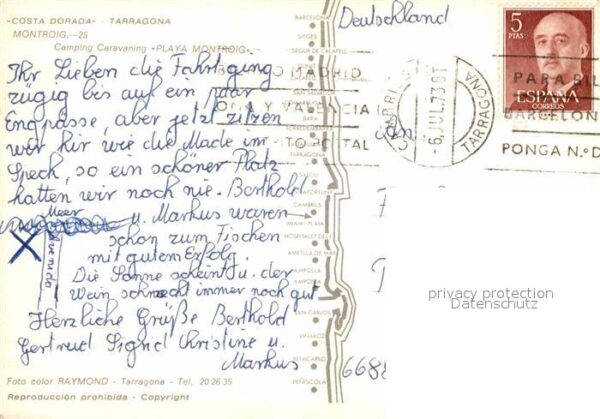 «COSTA DORADA» - TARRAGONA
MONTROIG.—25
Camping Caravaning «PLAYA MONTROIG».
Deutschland
5
PTAS
ESPAÑA
CORREOS
CAMBRILS
-6.JUL.73
TARRAGONA
MADRID
Y VALENCIA
POSTAL
PARA
BARCELON
PONGA N.º D
Ihr Lieben die Fahrt ging
zügig bis auf ein paar
Engpässe, aber jetzt sitzen
wir hir wie die Made im
Speck, so ein schöner Platz
hatten wir noch nie. Berthold
Meer
u. Markus waren
schon zum Fischen
mit gutem Erfolg.
Die Sonne scheint u. der
Wein schmeckt immer noch gut
Herzliche Grüße Berthold
Gertrud Sigrid Christine u.
Markus
An
668
BARCELONA
SITGES
TARRAGONA
SALOU
CAMBRILS
MIAMI-PLAYA
HOSPITALET DEL I.
AMETLLA DE MAR
AMPOLLA
AMPOSTA
SAN CARLOS
VINAROZ
BENICARLO
PEÑISCOLA
privacy protection
Datenschutz
Foto color RAYMOND - Tarragona - Tel. 20 26 35
Reproducción prohibida - Copyright